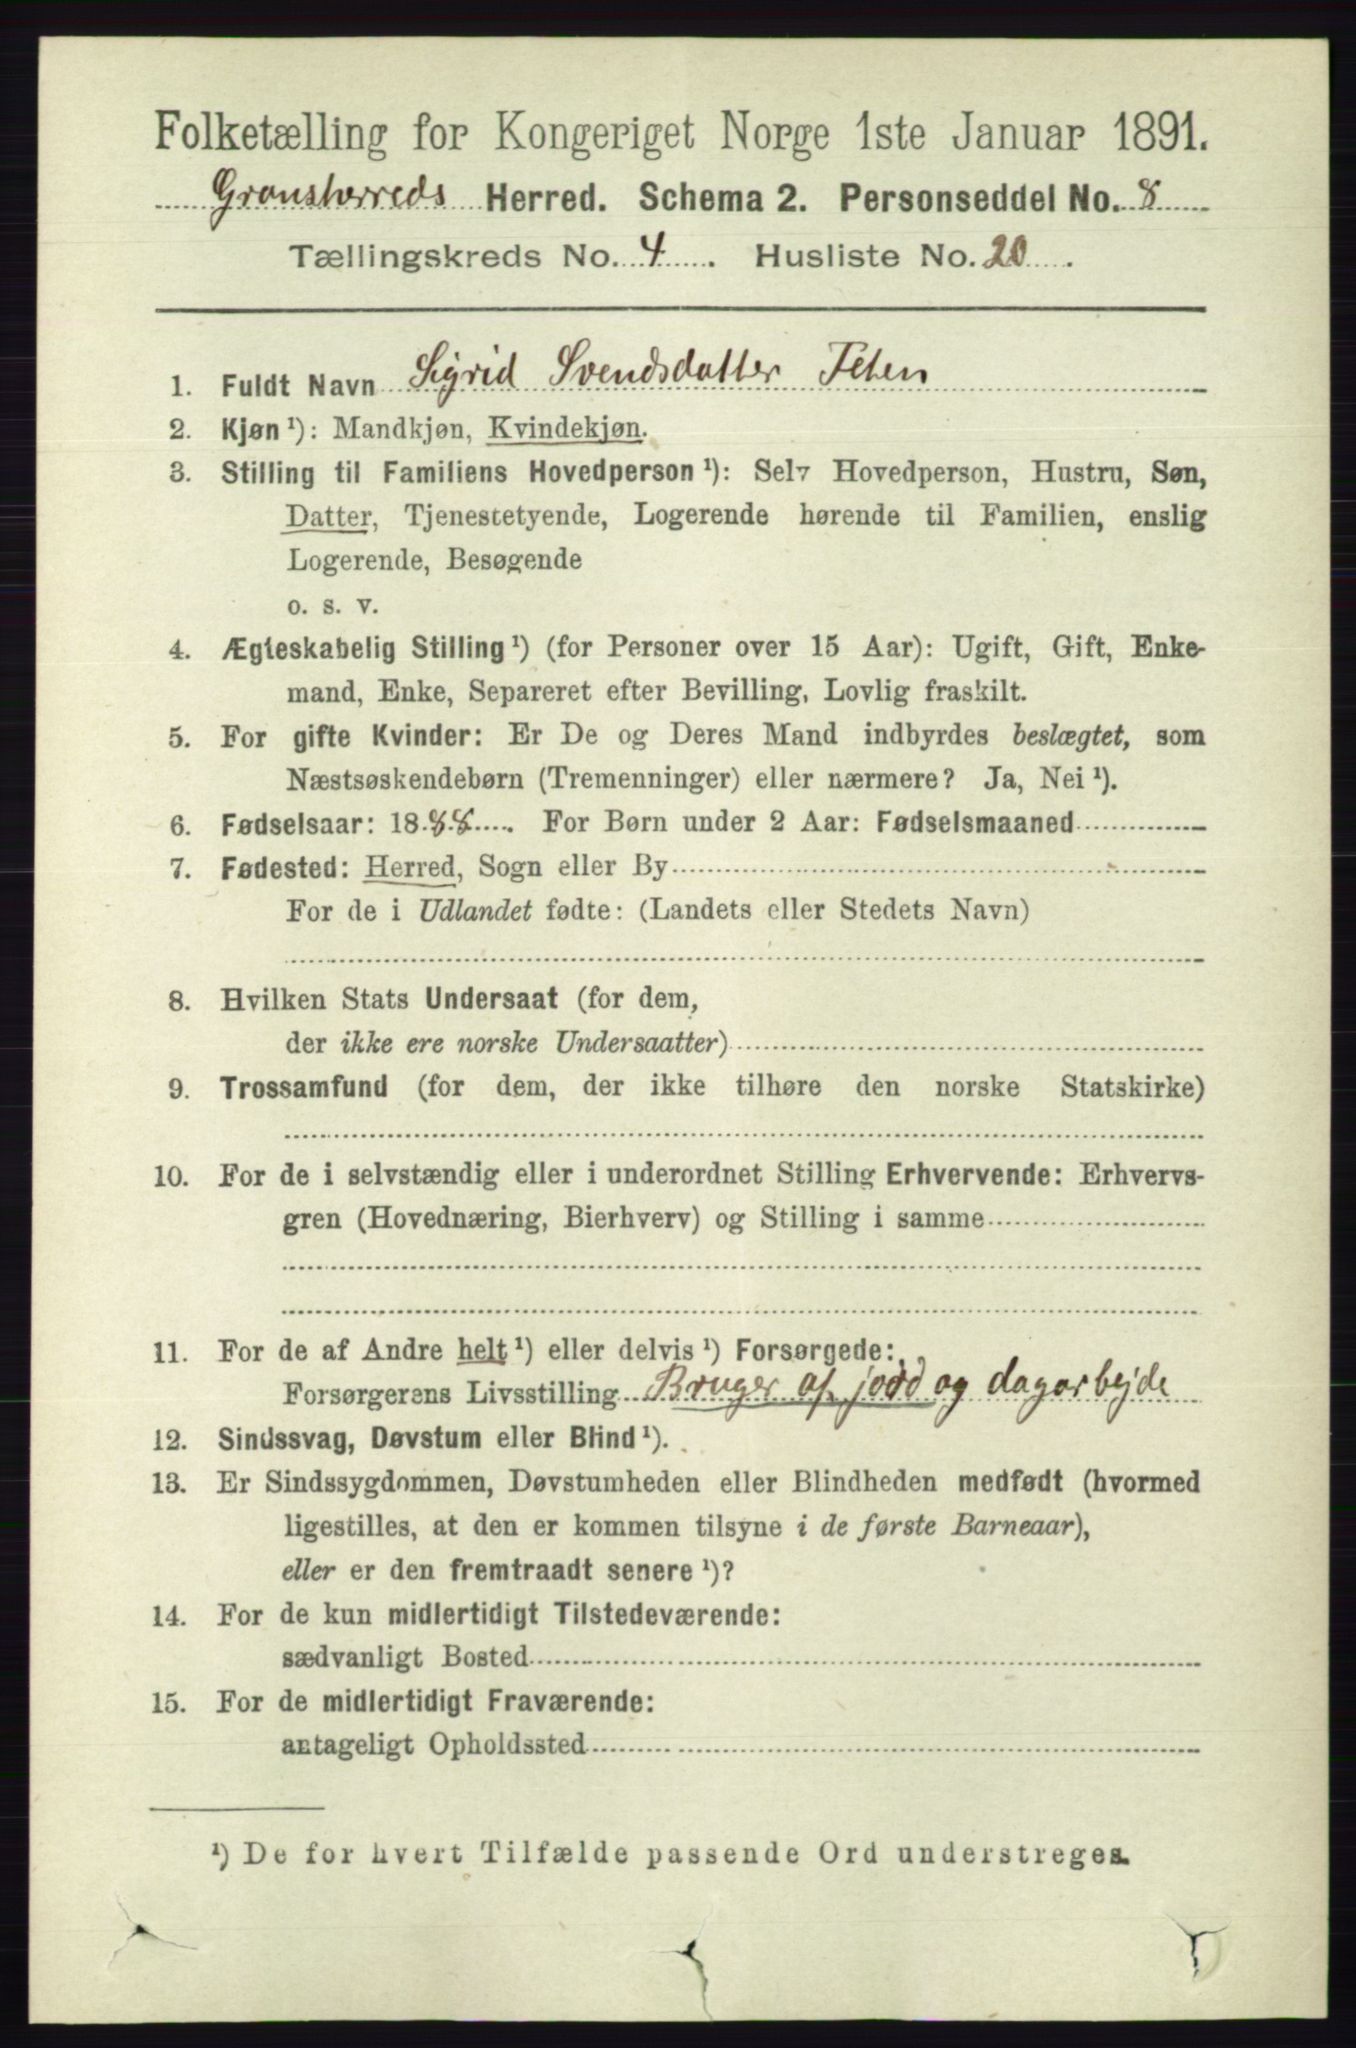 Folketælling for Kongeriget Norge 1ste Januar 1891.
Gransherreds Herred. Schema 2. Personseddel No. 8
Tællingskreds No. 4. Husliste No. 20.
1. Fuldt Navn Sigrid Svendsdatter Teten
2. Kjøn ¹): Mandkjøn, Kvindekjøn.
3. Stilling til Familiens Hovedperson ¹): Selv Hovedperson, Hustru, Søn,
Datter, Tjenestetyende, Logerende hørende til Familien, enslig
Logerende, Besøgende
o. s. v.
4. Ægteskabelig Stilling ¹) (for Personer over 15 Aar): Ugift, Gift, Enke-
mand, Enke, Separeret efter Bevilling, Lovlig fraskilt.
5. For gifte Kvinder: Er De og Deres Mand indbyrdes beslægtet, som
Næstsøskendebørn (Tremenninger) eller nærmere? Ja, Nei ¹).
6. Fødselsaar: 1888. For Børn under 2 Aar: Fødselsmaaned
7. Fødested: Herred, Sogn eller By
For de i Udlandet fødte: (Landets eller Stedets Navn)
8. Hvilken Stats Undersaat (for dem,
der ikke ere norske Undersaatter)
9. Trossamfund (for dem, der ikke tilhøre den norske Statskirke)
10. For de i selvstændig eller i underordnet Stilling Erhvervende: Erhvervs-
gren (Hovednæring, Bierhverv) og Stilling i samme
11. For de af Andre helt ¹) eller delvis ¹) Forsørgede:
Forsørgerens Livsstilling Bruger af jord og dagarbejde
12. Sindssvag, Døvstum eller Blind ¹).
13. Er Sindssygdommen, Døvstumheden eller Blindheden medfødt (hvormed
ligestilles, at den er kommen tilsyne i de første Barneaar),
eller er den fremtraadt senere ¹)?
14. For de kun midlertidigt Tilstedeværende:
sædvanligt Bosted
15. For de midlertidigt Fraværende:
antageligt Opholdssted
¹) De for hvert Tilfælde passende Ord understreges.